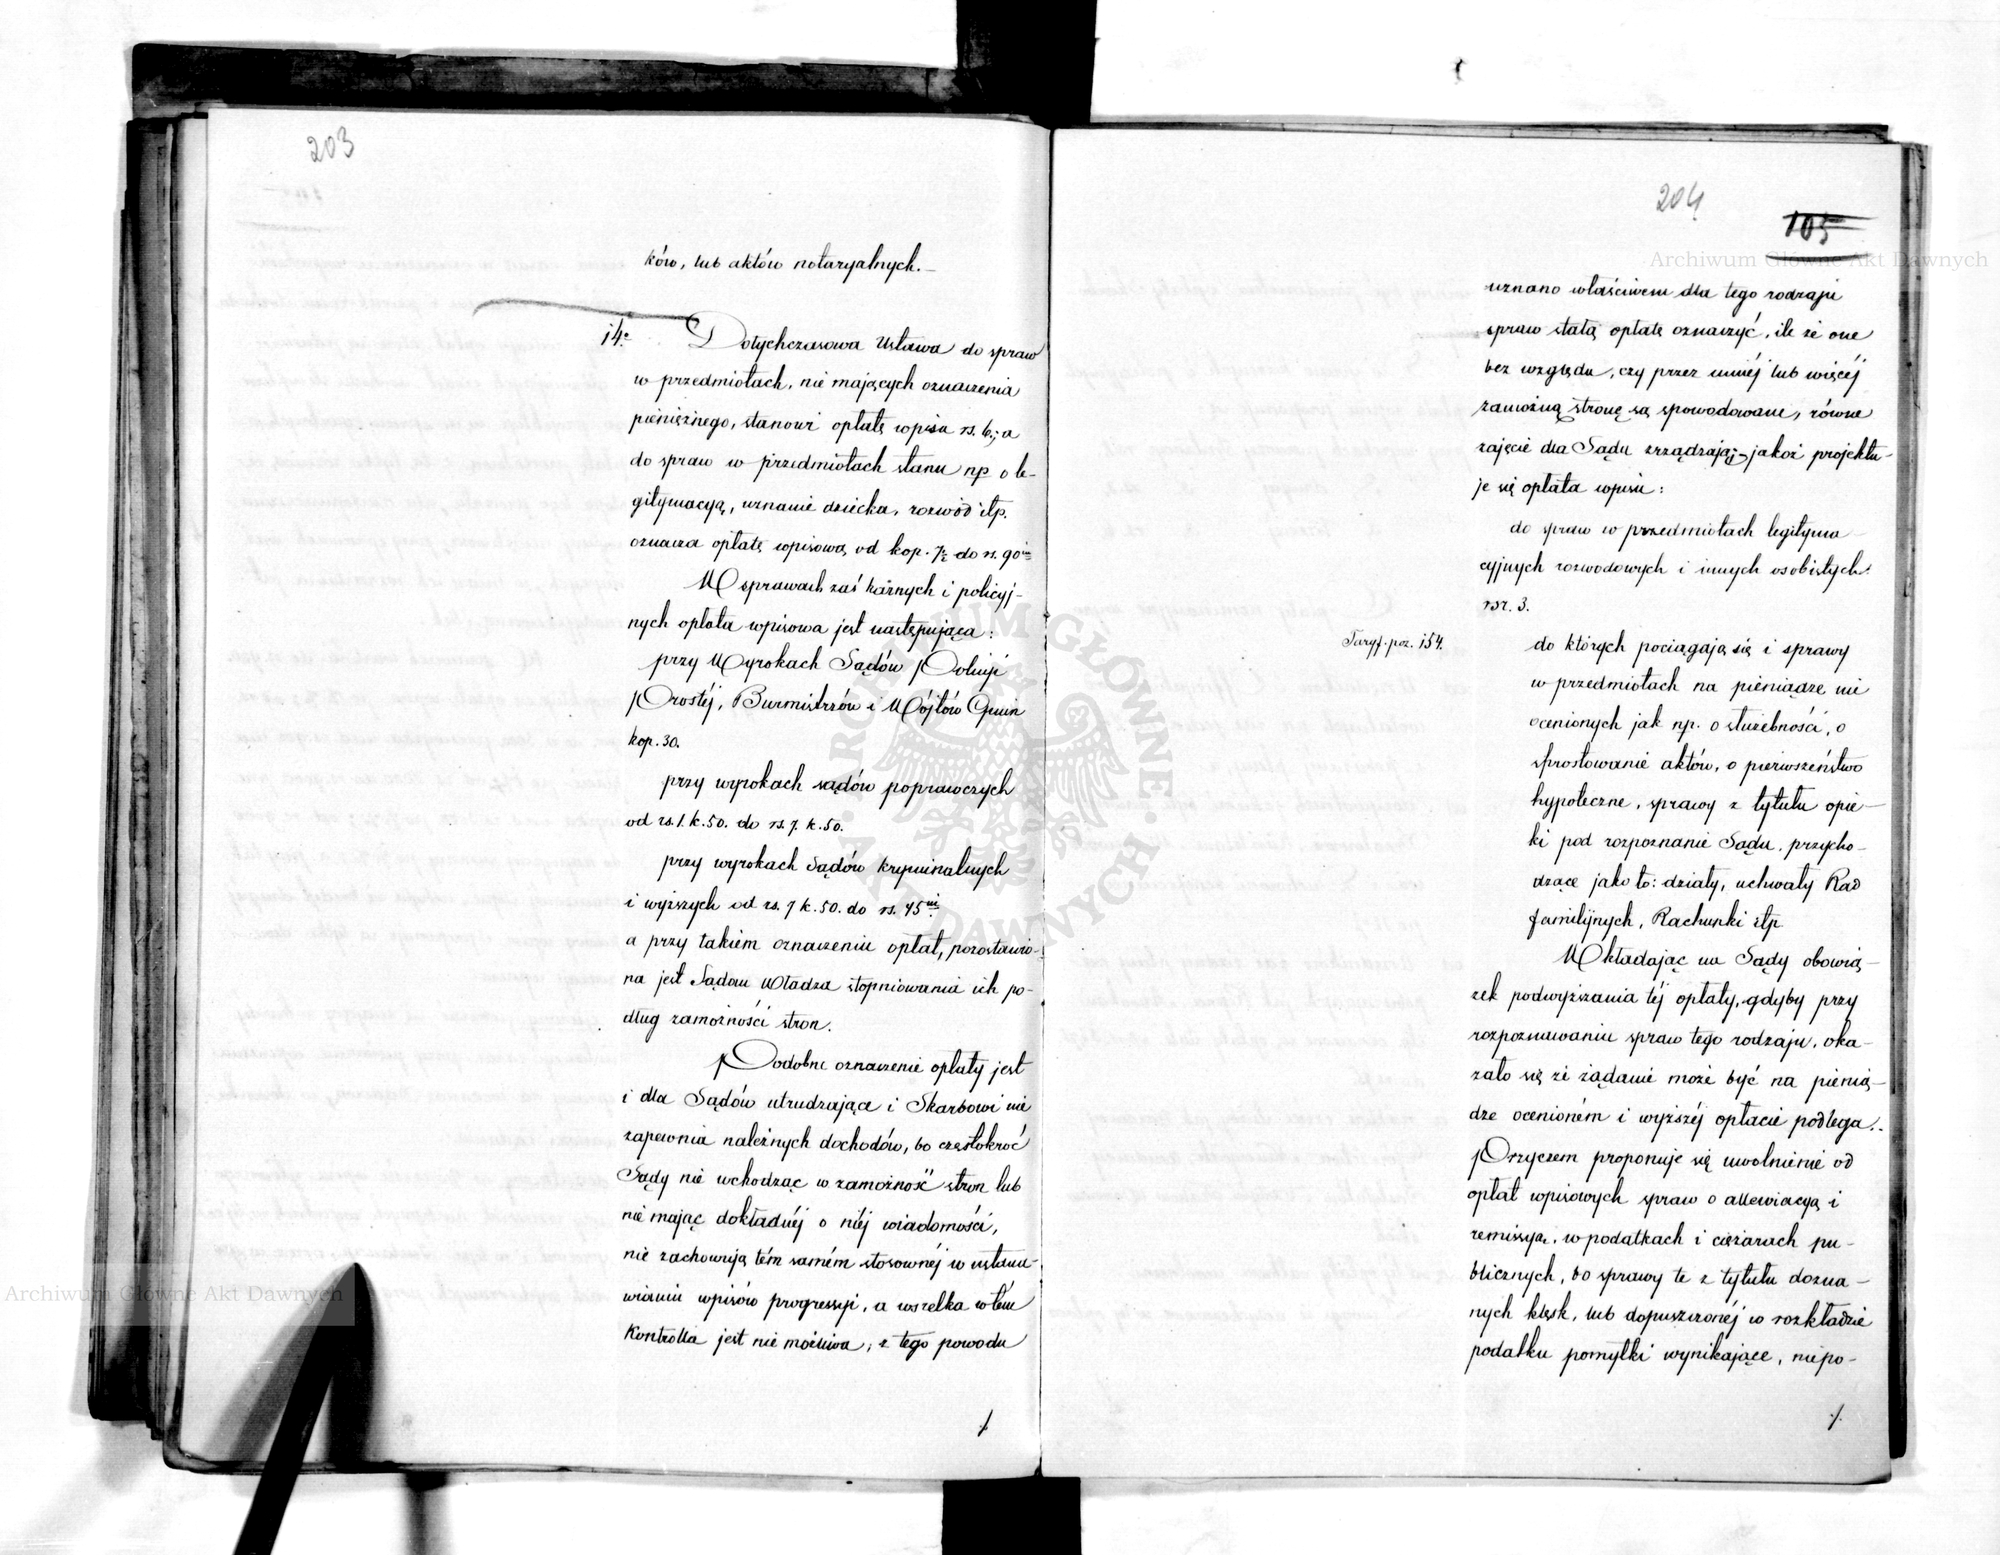 203
ków, lub aktów notaryalnych.—
14. Dotychczasowa Ustawa do spraw
w przedmiotach, nie mających oznaczenia
pieniężnego, stanowi opłatę wpisu rs. 6; a
do spraw w przedmiotach stanu np o le-
gitymacyą, uznanie dziecka, rozwód itp.
oznacza opłatę wpisową od kop. 7½ do rs. 90
W sprawach zaś karnych i policyj-
nych opłata wpisowa jest następująca:
przy Wyrokach Sądów Policyi
Prostéj, Burmistrzów i Wójtów Gmin
kop. 30.
przy wyrokach sądów poprawczych
od rs. 1. k. 50. do rs. 7. k. 50.
przy wyrokach Sądów kryminalnych
i wyższych od rs. 7 k. 50. do rs. 45
a przy takiém oznaczeniu opłat, pozostawio-
na jest Sądom Władza stopniowania ich po-
dług zamożności stron.
Podobne oznaczenie opłaty jest
i dla Sądów utrudzające i Skarbowi nie
zapewnia należnych dochodów, bo częstokroć
Sądy nie wchodząc w zamożność stron lub
nie mając dokładnéj o niéj wiadomości,
nie zachowują tém samém stosownéj w ustana-
wianiu wpisów progressyi, a wszelka w tém
Kontrolla jest nie możliwa; z tego powodu
./.
204
105
uznano właściwem dla tego rodzaju
spraw stałą opłatę oznaczyć, ile że one
bez względu, czy przez mniéj lub więcéj
zamożną stronę są spowodowane, równe
zajęcie dla Sądu zrządzają; jakoż projektu-
je się opłata wpisu:
do spraw w przedmiotach legityma-
cyjnych rozwodowych i innych osobistych.
rsr. 3.
Taryf. poz. 154.
do których pociągają się i sprawy
w przedmiotach na pieniądze nie
ocenionych jak np. o służebności, o
sprostowanie aktów, o pierwszeństwo
hypoteczne, sprawy z tytułu opie-
ki pod rozpoznanie Sądu przycho-
dzące jako to: działy, uchwały Rad
familijnych, Rachunki itp
Wkładając na Sądy obowią-
zek podwyższania téj opłaty, gdyby przy
rozpoznawaniu spraw tego rodzaju, oka-
zało się że żądanie może być na pienią-
dze ocenioném i wyższéj opłacie podlega.
Przyczem proponuje się uwolnienie od
opłat wpisowych spraw o allewiacyą i
remissyą, w podatkach i ciężarach pu-
blicznych, bo sprawy te z tytułu dozna-
nych klęsk, lub dopuszczonéj w rozkładzie
podatku pomyłki wynikające, niepo-
./.
Archiwum Główne Akt Dawnych
Archiwum Główne Akt Dawnych
ARCHIWUM GŁÓWNE AKT DAWNYCH